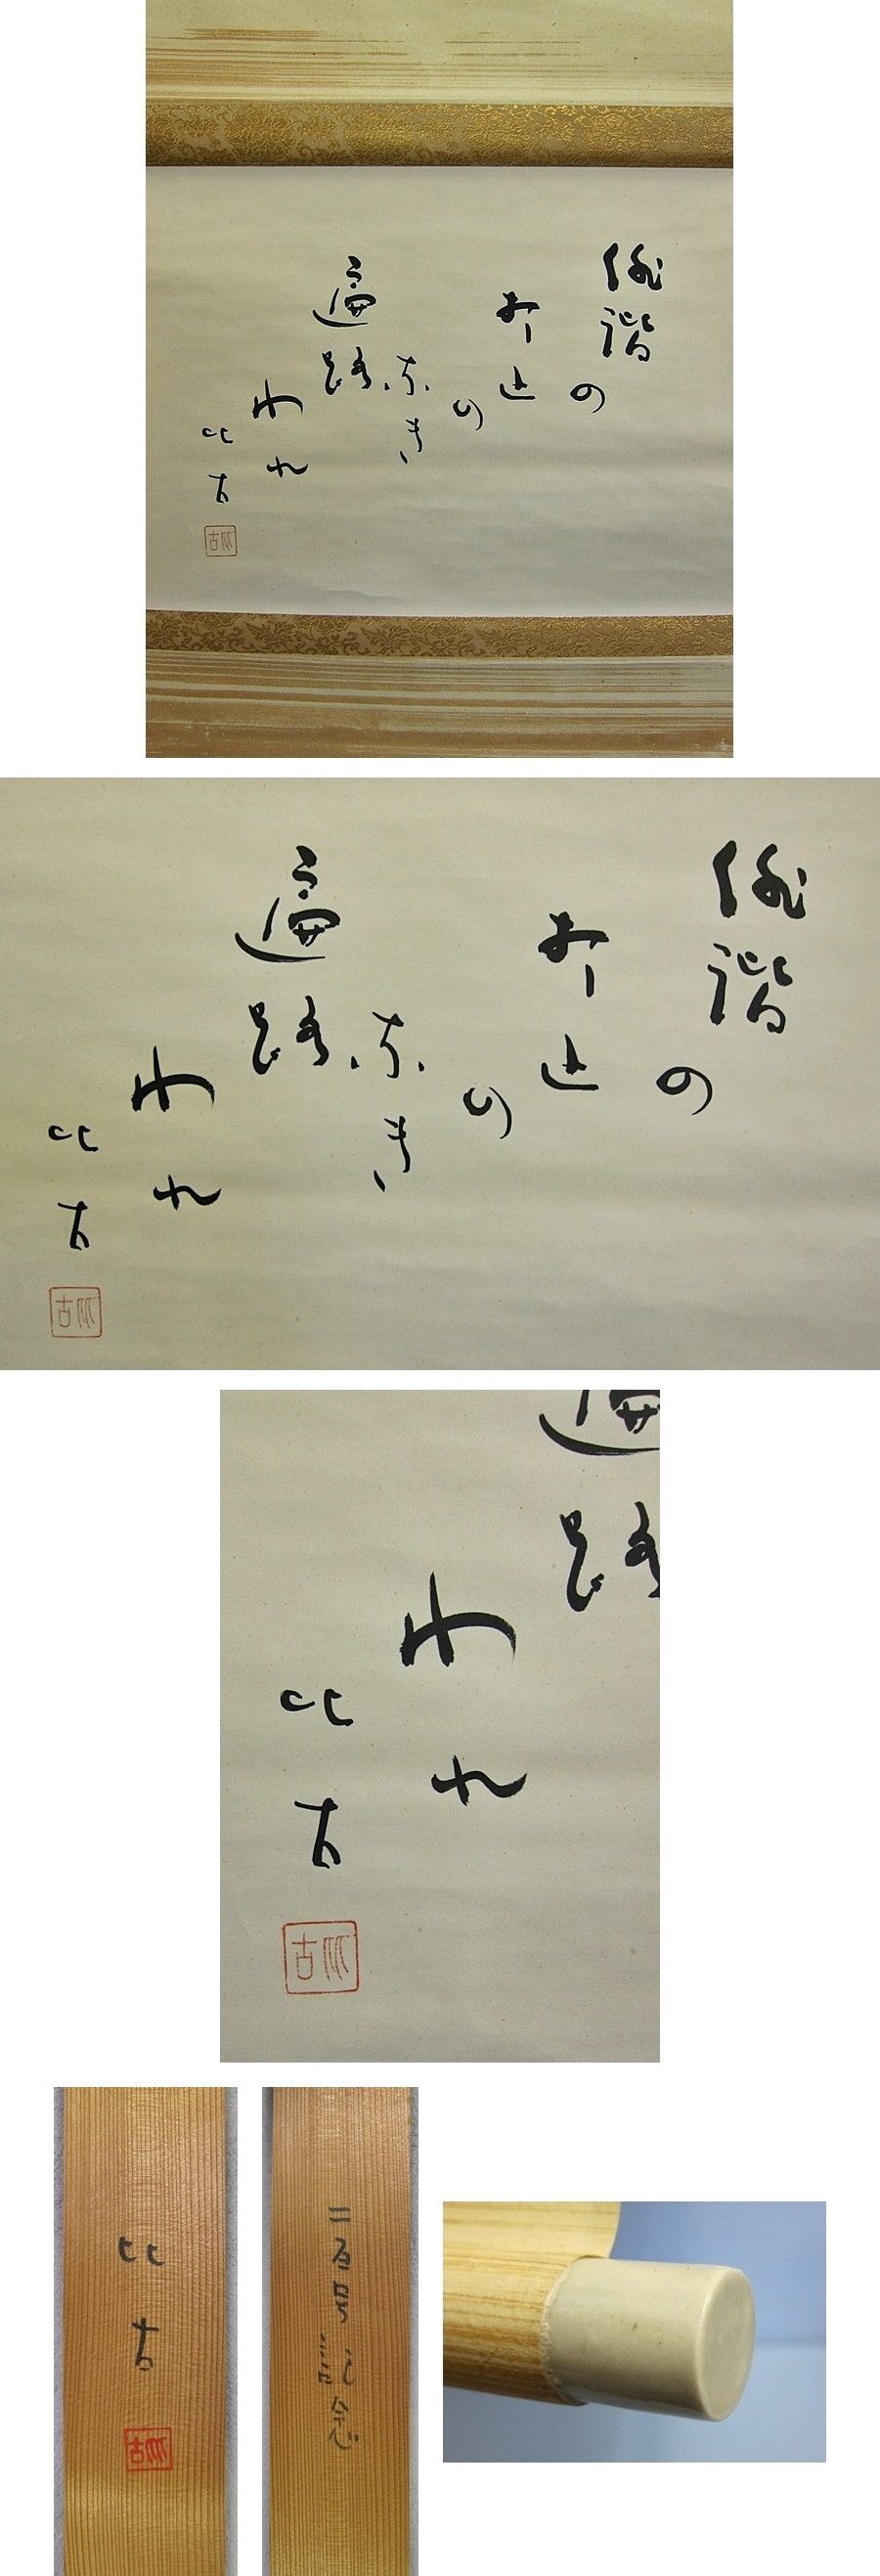 俳諧の
打止
の
なき
遍路
われ
比古
比古
俳諧の
打止
の
なき
遍路
われ
比古
比古
遍路
われ
比古
比古
比古
比古
二百号記念